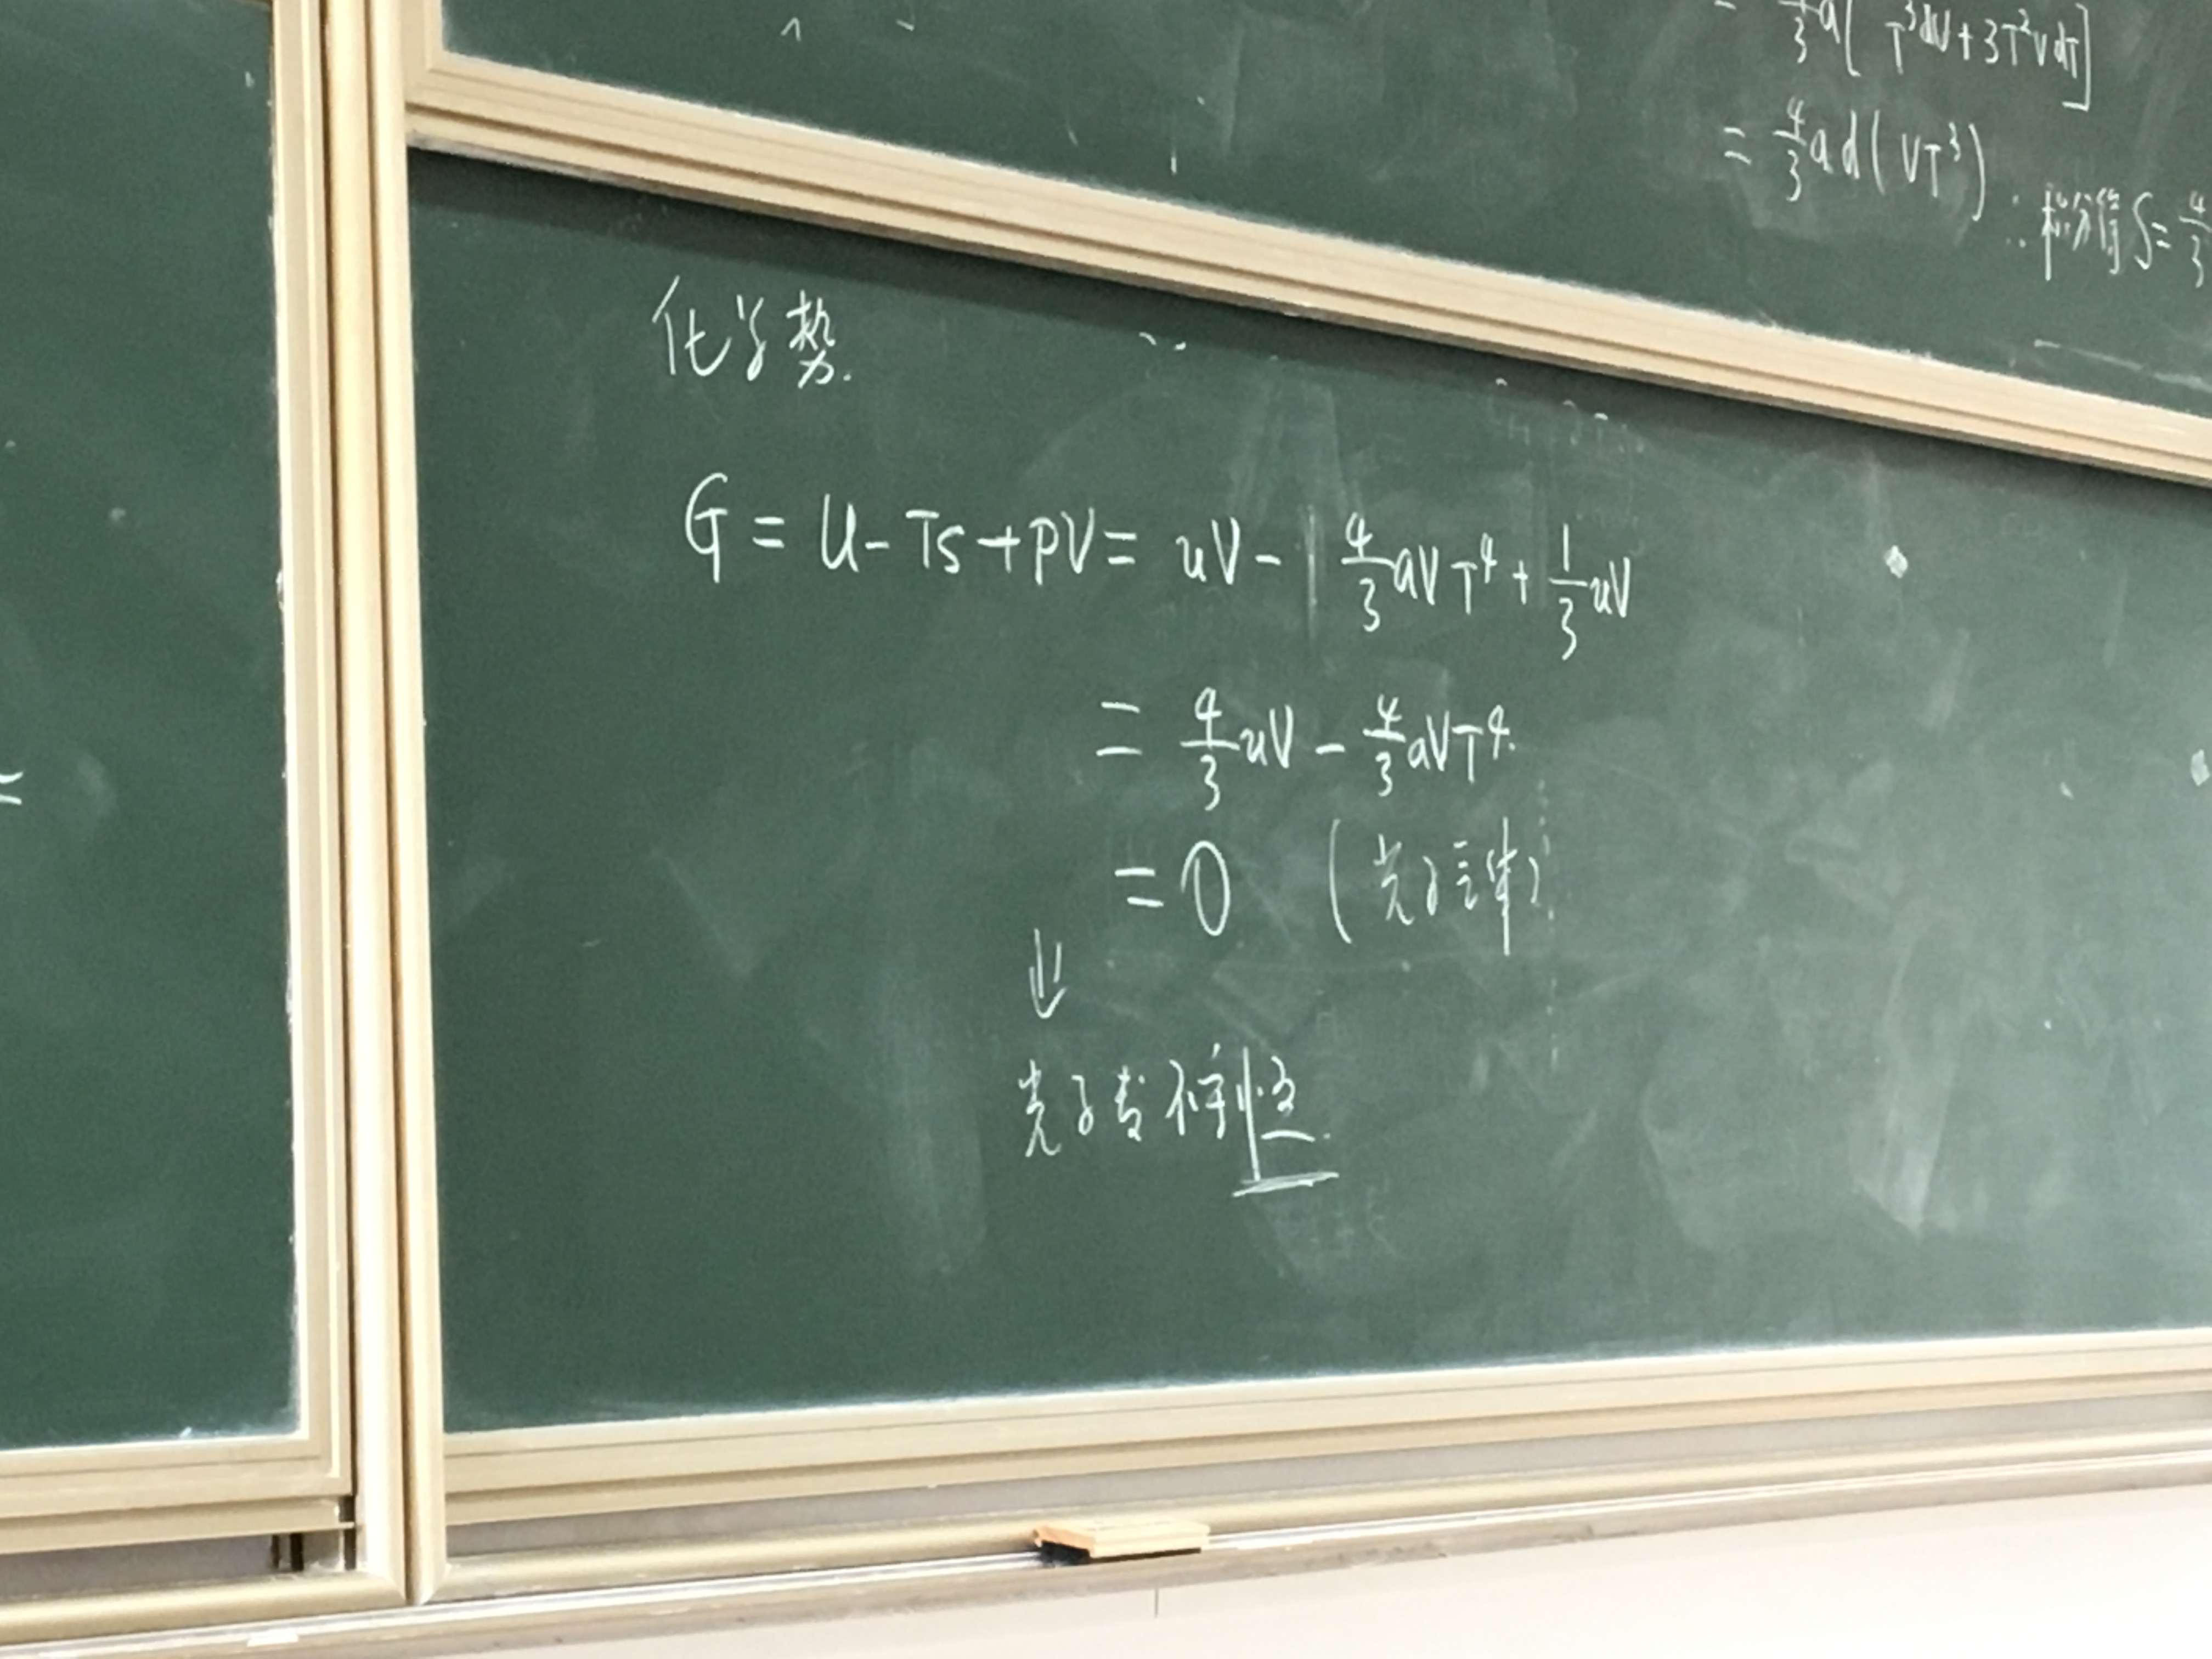 = 4/3 a[T³dV+3T²VdT]
= 4/3 a d(VT³)
∴积分得 S= 4/3
化学势.
G = U - TS + PV = uV - 4/3 aVT⁴ + 1/3 uV
= 4/3 uV - 4/3 aVT⁴.
= 0 (光子
⇓
光子数不守恒.